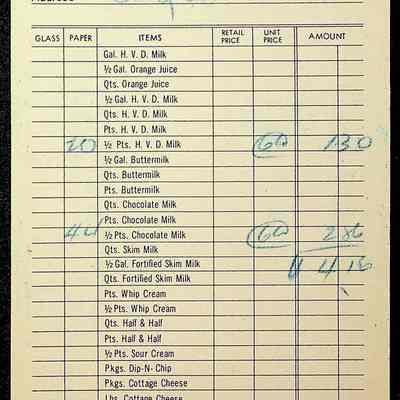 GLASS PAPER ITEMS RETAIL PRICE UNIT PRICE AMOUNT
Gal. H. V. D. Milk
½ Gal. Orange Juice
Qts. Orange Juice
½ Gal. H. V. D. Milk
Qts. H. V. D. Milk
Pts. H. V. D. Milk
20 ½ Pts. H. V. D. Milk 6½ 130
½ Gal. Buttermilk
Qts. Buttermilk
Pts. Buttermilk
Qts. Chocolate Milk
Pts. Chocolate Milk
44 ½ Pts. Chocolate Milk 6½ 286
Qts. Skim Milk
½ Gal. Fortified Skim Milk 4 16
Qts. Fortified Skim Milk
Pts. Whip Cream
½ Pts. Whip Cream
Qts. Half & Half
Pts. Half & Half
½ Pts. Sour Cream
Pkgs. Dip-N-Chip
Pkgs. Cottage Cheese
Lbs. Cottage Cheese